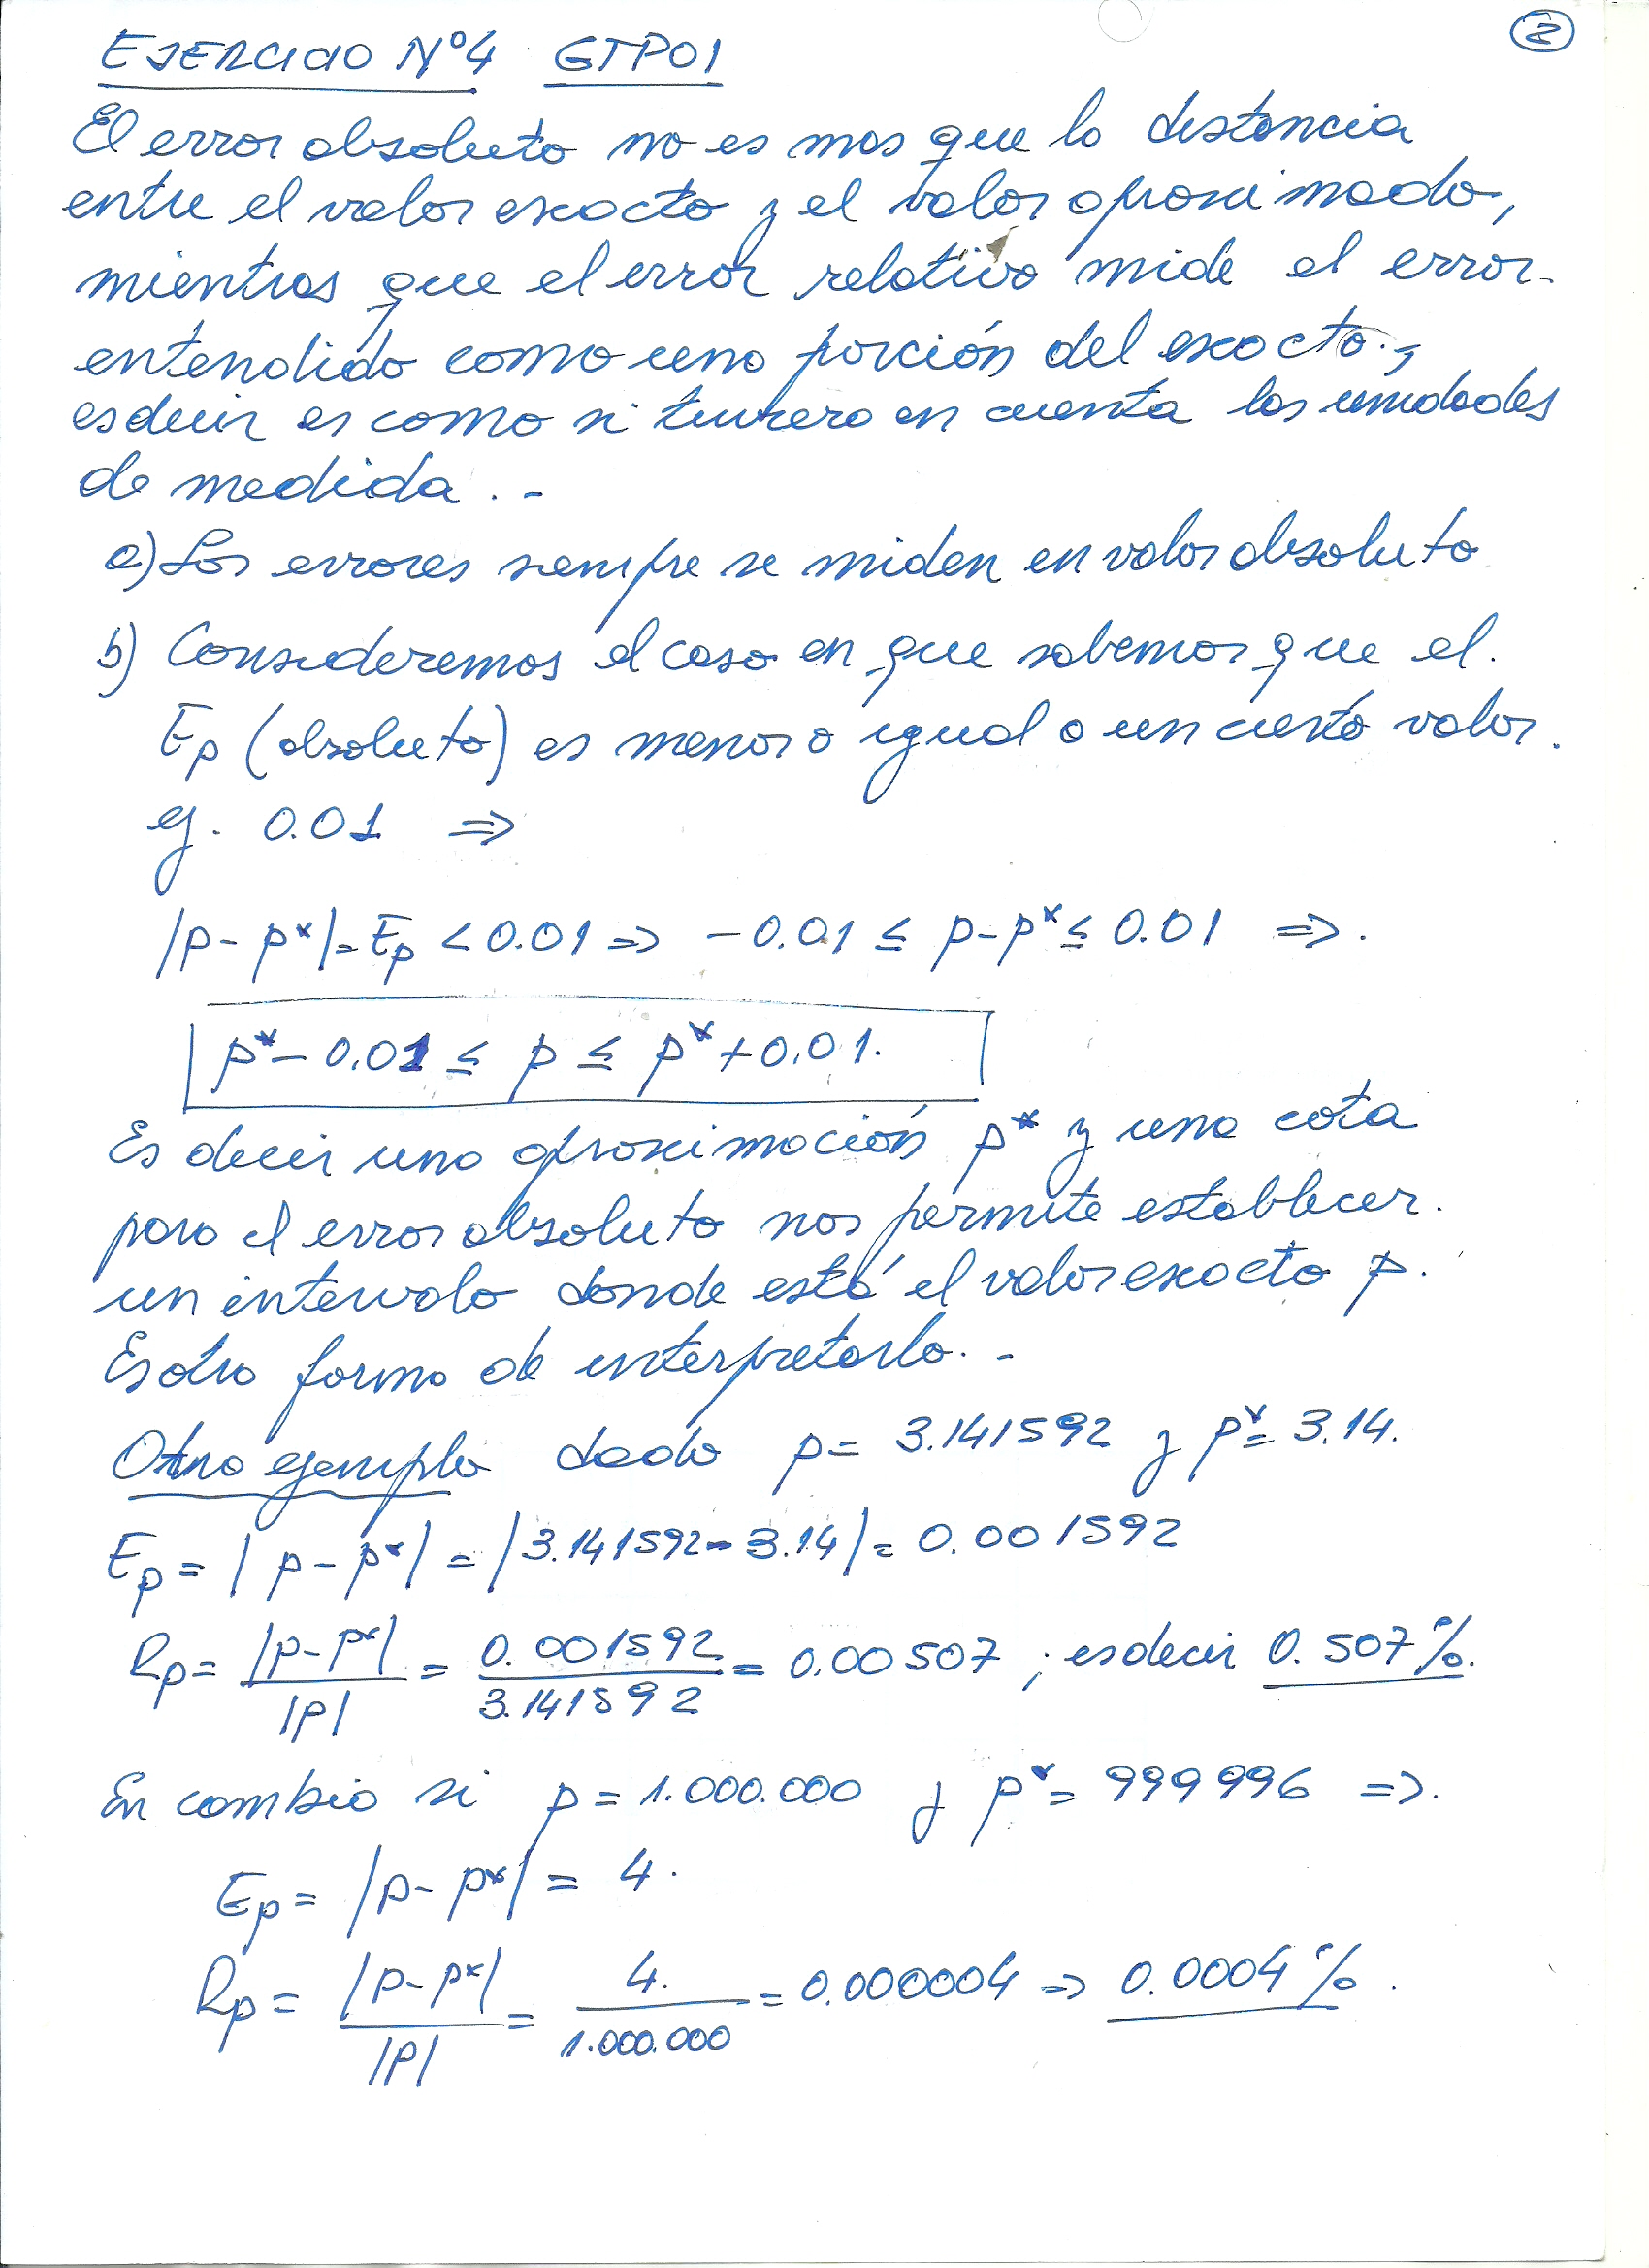 ②
EJERCICIO Nº4 GTP01
El error absoluto no es mas que la distancia
entre el valor exacto y el valor aproximado,
mientras que el error relativo mide el error
entendido como una porción del exacto.,
es decir es como si tuviera en cuenta las unidades
de medida . -
a) Los errores siempre se miden en valor absoluto
b) Consideremos el caso en que sabemos que el.
Ep (absoluto) es menor o igual a un cierto valor.
ej. 0.01 ⇒
|p - p*| = Ep < 0.01 ⇒ -0.01 ≤ p-p* ≤ 0.01 ⇒.
p* - 0.01 ≤ p ≤ p* + 0.01.
Es decir una aproximación p* y una cota
para el error absoluto nos permite establecer.
un intervalo donde está el valor exacto p.
Es otra forma de interpretarlo. -
Otro ejemplo dado p = 3.141592 y p* = 3.14.
Ep = | p - p*| = |3.141592 - 3.14| = 0.001592
Rp = |p - p*| / |p| = 0.001592 / 3.141592 = 0.00507 ; es decir 0.507%.
En cambio si p = 1.000.000 y p* = 999996 ⇒.
Ep = |p - p*| = 4.
Rp = |p - p*| / |p| = 4. / 1.000.000 = 0.000004 ⇒ 0.0004% .